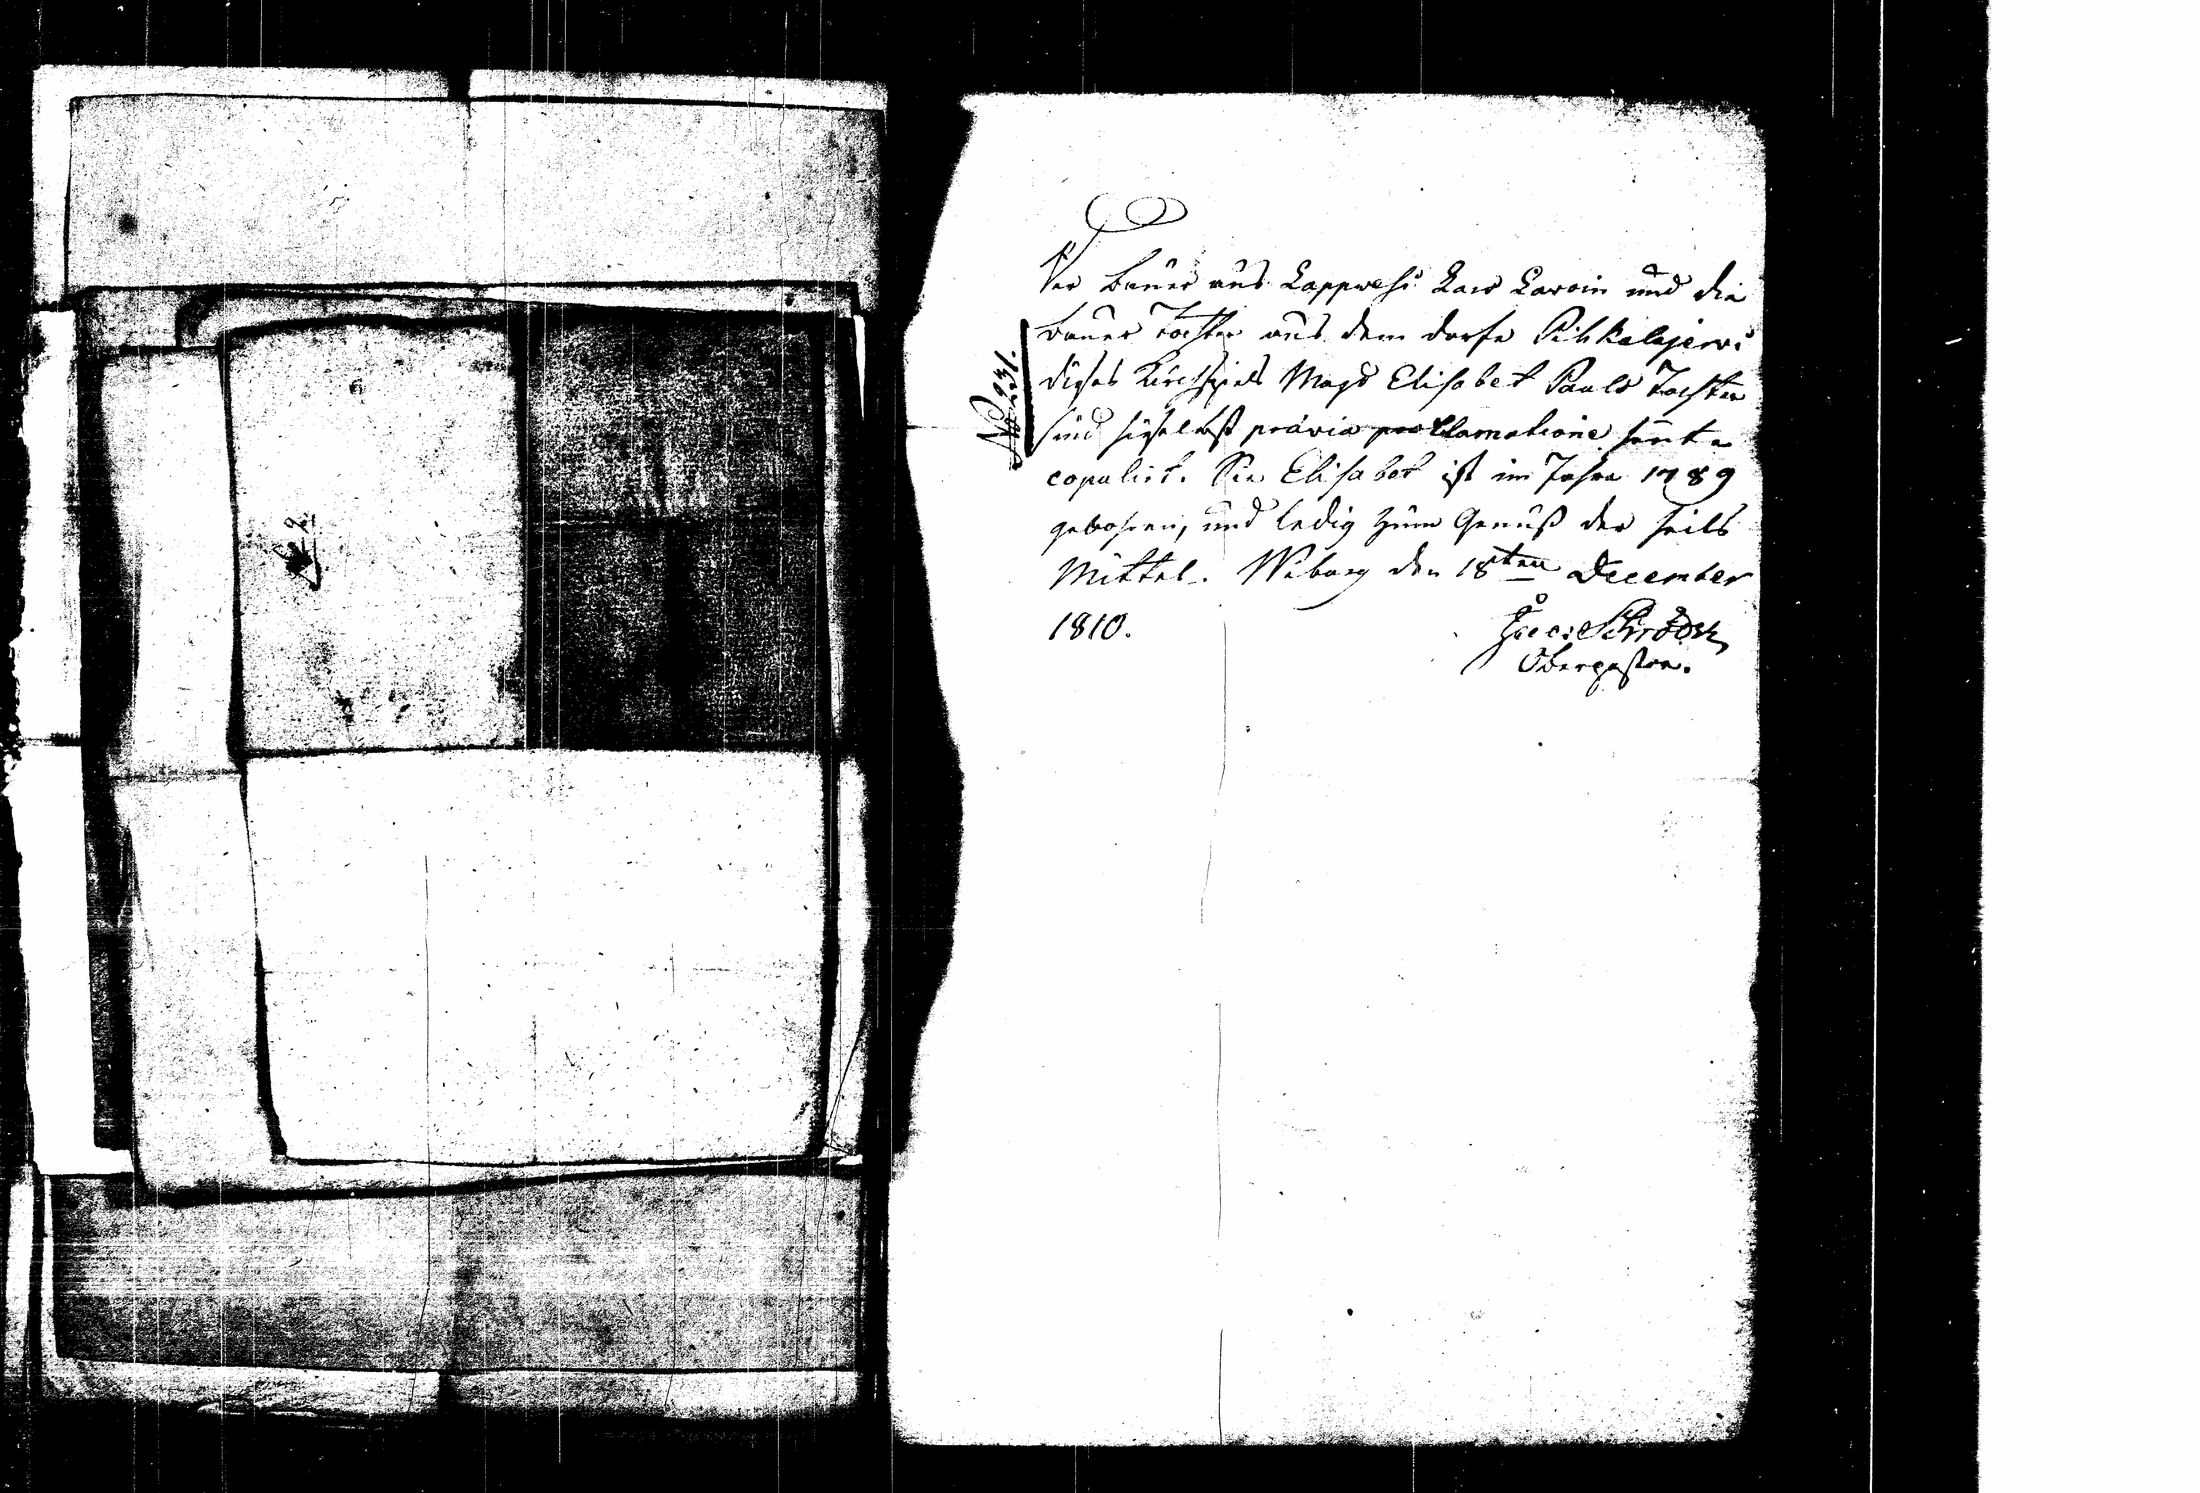 No 231.
Der Bauer aus Lappwesi Lars Lavoin und die
bauer Tochter aus dem dorfe Pihkalajerwi
dieses Kirchspiels Magd Elisabet Pauls Tochter
sind hieselbst prävia proklamatione heute
copulirt. Die Elisabet ist im Jahre 1789
gebohren, und ledig zum Genuß der Heils
Mittel. Wiburg den 18ten December
1810. Schröder
Oberpastor.